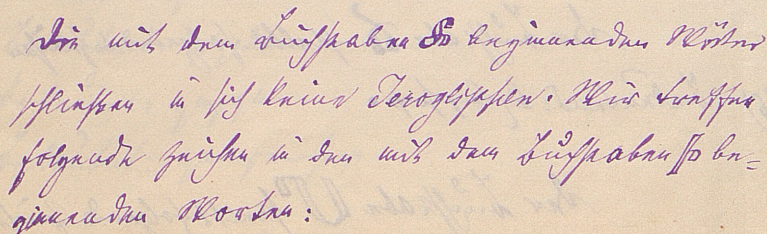 Die mit dem Buchstaben So beginnenden Wörter
schließen in sich keine Ieroglifen. Wir treffen
folgende Zeichen in den mit dem Buchstaben be=
ginnenden Worten: